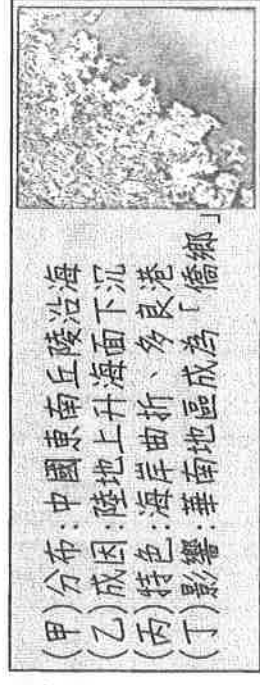 (甲)分布:中國東南丘陵沿海
(乙)成因:陸地上升海面下沉
(丙)特色:海岸曲折、多良港
(丁)影響:華南地區成為「僑鄉」